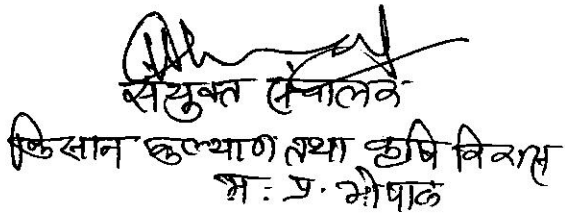 संयुक्त संचालक
किसान कल्याण तथा कृषि विकास
म. प्र. भोपाल